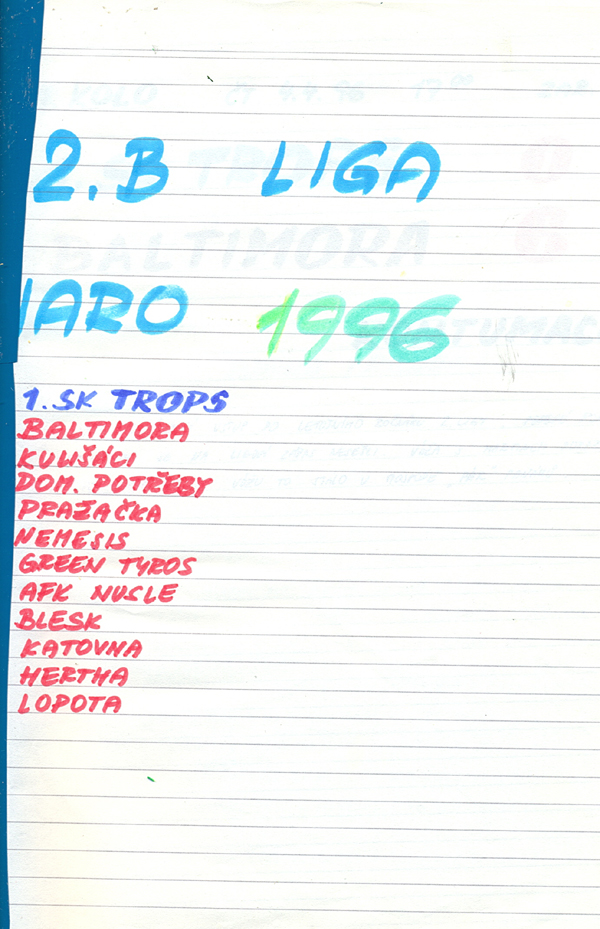 2.B LIGA
JARO 1996
1.SK TROPS
BALTIMORA
KULIŠÁCI
DOM. POTŘEBY
PRAŽAČKA
NEMESIS
GREEN TYROS
AFK NUSLE
BLESK
KATOVNA
HERTHA
LOPOTA